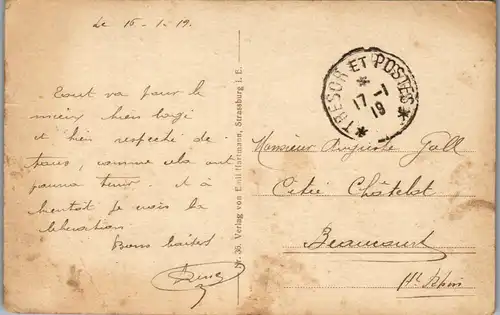 Le 16-1-19.
Tout va pour le
mieux bien logé
et bien respecté de
tous, comme cela ont
pourra tenir. et à
bientôt je crois la
libération
Bons baisers
Nr. 36. Verlag von Emil Hartmann, Strassburg i. E.
* TRESOR ET POSTES *
*
17-1
19
Monsieur Auguste Goll
Cité Châtelot
Beaucourt
Ht Rhin